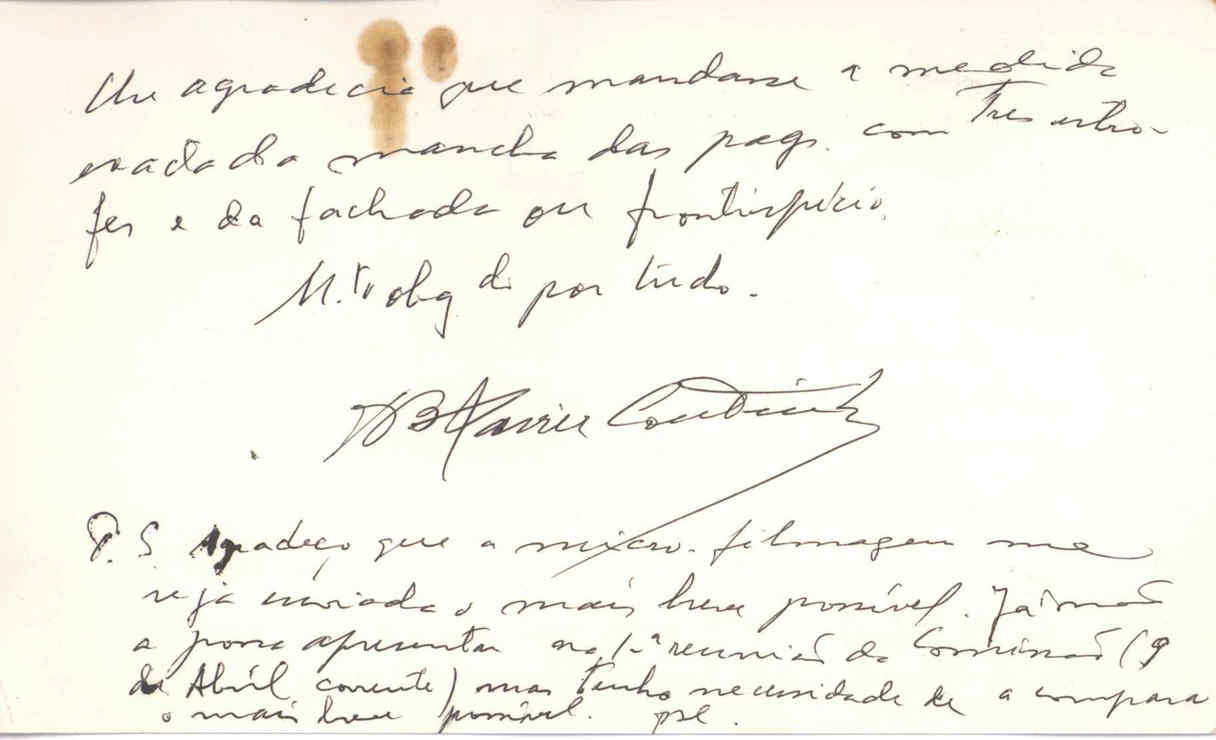 agradecia que mandasse a medida
exacta da mancha das pags. com Tres estro-
fes e da fachada ou frontispicio.
M.to obg do por tudo.
B Xavier Coutinho
P. S. Agradeço que a micro-filmagem me
seja enviada o mais breve possivel. Já não
a posso apresentar na 1.ª reunião da Comissão (9
de Abril corrente) mas tenho necessidade de a compara
o mais breve possivel.